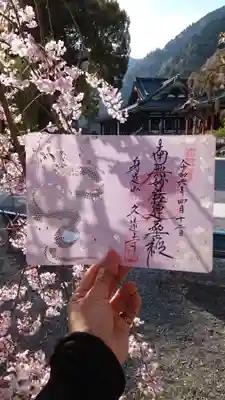 令和六年四月十二日
南無妙法蓮華経
身延山 久遠寺